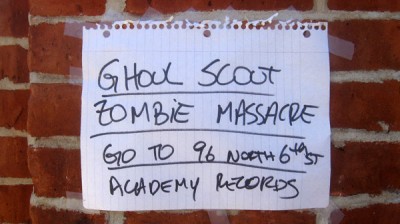 GHOUL SCOUT
ZOMBiE MASSACRE
GO TO 96 NORTH 6TH ST
ACADEMY RECORDS